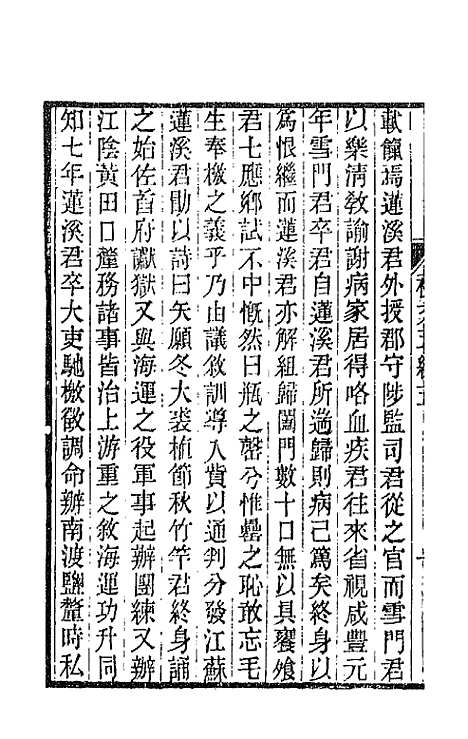 歡餼焉蓮溪君外授郡守陟監司君從之官而雪門君
以樂清敎諭謝病家居得咯血疾君往來省視咸豐元
年雪門君卒君自蓮溪君所遄歸則病已篤矣終身以
爲恨繼而蓮溪君亦解組歸闔門數十口無以具饔飧
君七應鄉試不中慨然曰瓶之罄兮惟罍之恥敢忘毛
生奉檄之義乎乃由議敘訓導入貲以通判分發江蘇
蓮溪君勖以詩曰矢願冬大裘植節秋竹竿君終身誦
之始佐首府讞獄又與海運之役軍事起辦團練又辦
江陰黃田口釐務諸事皆治上游重之敘海運功升同
知七年蓮溪君卒大吏馳檄徵調命辦南渡鹽釐時私